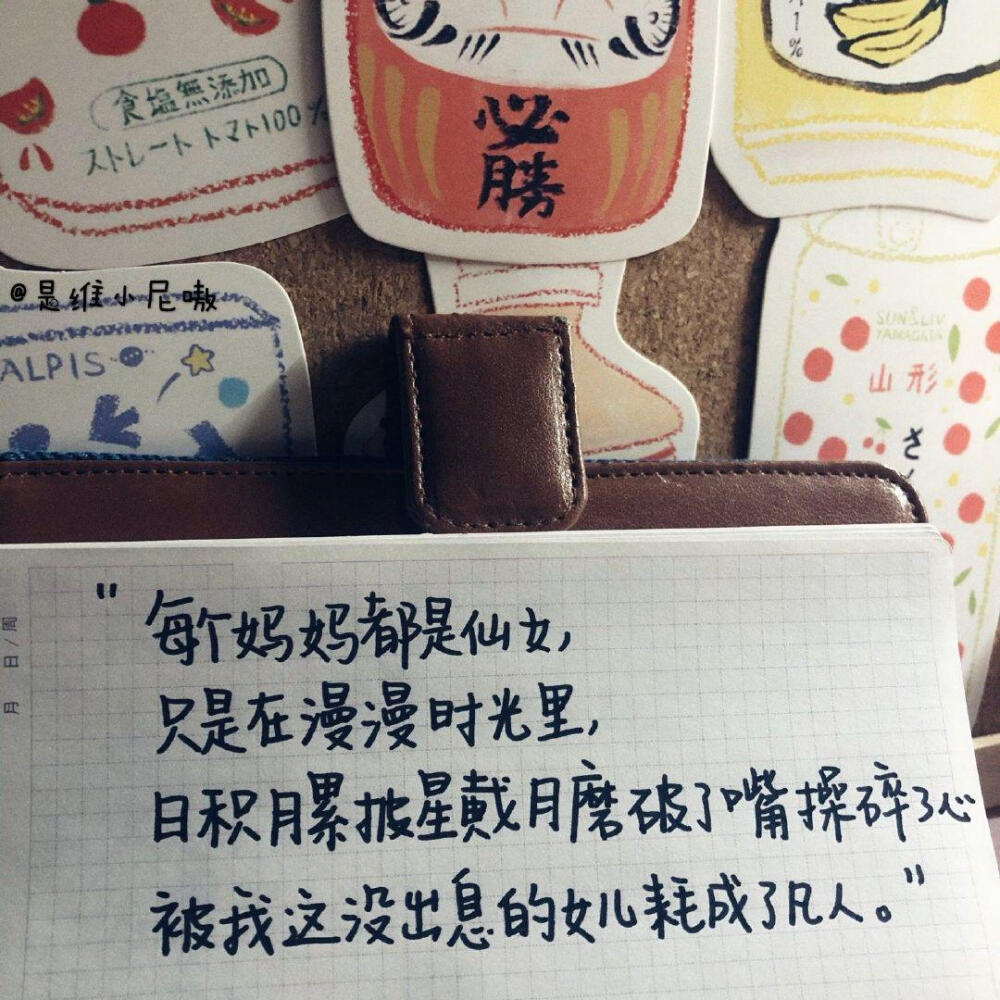 食塩無添加
ストレートトマト100%
必勝
1%
@是维小尼嗷
ALPIS
SUN&LIV
YAMAGATA
山形
さ
月 日/周
"每个妈妈都是仙女,
只是在漫漫时光里,
日积月累披星戴月磨破了嘴操碎了心
被我这没出息的女儿耗成了凡人。"